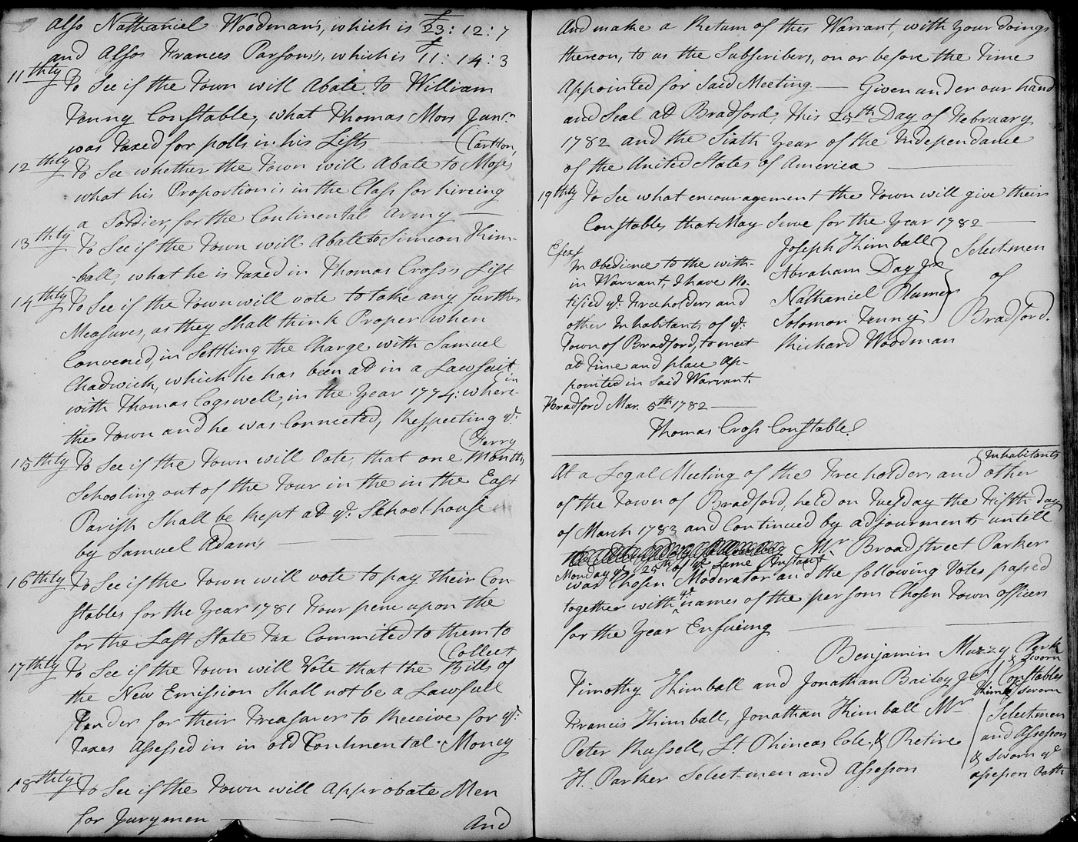 Also Nathaniel Woodman's, which is £23:12:7
and Also Frances Parsons's, which is £11:14:3
11thly To See if the Town will Abate to William
Tenny Constable, what Thomas Mors Junr
was Taxed for polls in his Lists
12thly To See whether the Town will Abate to Mose (Carlton,
what his Proportion is in the Class for hireing
a Soldier for the Continental Army
13thly To See if the Town will Abate to Simeon Kim-
-ball, what he is Taxed in Thomas Cross's List
14thly To See if the Town will vote to take any further
Measures, as they Shall think Proper when
Convened, in Settling the Charge with Samuel
Chadwick, which he has been at in a Lawsuit
with Thomas Cogswell, in the Year 1774: where in
the Town and he was Connected, Respecting ye
(Ferry
15thly To See if the Town will Vote, that one Months
Schooling out of the Four in the in the East
Parish Shall be Kept at ye School house
by Samuel Adams
16thly To See if the Town will vote to pay their Con-
stables for the Year 1781 Four pence upon the
for the Last State Tax Committed to them to
(Collect
17thly To See if the Town will Vote that the Bills of
the New Emission Shall not be a Lawfull
Tender for their Treasurer to Receive for ye
Taxes Assessed in in old Continental Money
18thly To See if the Town will Approbate Men
for Jurymen
And
And make a Return of this Warrant, with Your Doings
thereon, to us the Subscribers, on or before the Time
Appointed for Said Meeting — Given under our hand
and Seal at Bradford, this Day of February
1782 and the Sixth Year of the Independance
of the United States of America
19thly To See what encouragement the Town will give their
Constables that May Serve for the Year 1782
Joseph Kimball
Abraham Day Jr
Nathaniel Plumer
Solomon Tenny
Richard Woodman
Selectmen
of
Bradford.
Essex
In obedience to the with-
in Warrant, I have No-
tified ye Freeholders and
other Inhabitants of ye
Town of Bradford, to meet
at Time and place Ap-
pointed in Said Warrant.
Bradford Mar. 5th 1782
Thomas Cross Constable
At a Legal Meeting of the Freeholders and other (Inhabitants
of the Town of Bradford, held on Tuesday the Fifth day
of March 1782 and Continued by adjournments untill
Monday ye 25th of ye Same Instant Mr Broadstreet Parker
was Chosen Moderator and the following Votes passed
together with ye names of the persons Chosen Town officers
for the Year Ensueing
Benjamin Muzzy Clerk
& Sworn
Timothy Kimball and Jonathan Bailey Jr Constables
Sworn
Francis Kimball, Jonathan Kimball Mr
Peter Russell, Lt Phineas Cole, & Retire
H. Parker Select-men and Assessors
Selectmen
and Assessors
& Sworn ye
assessors oath